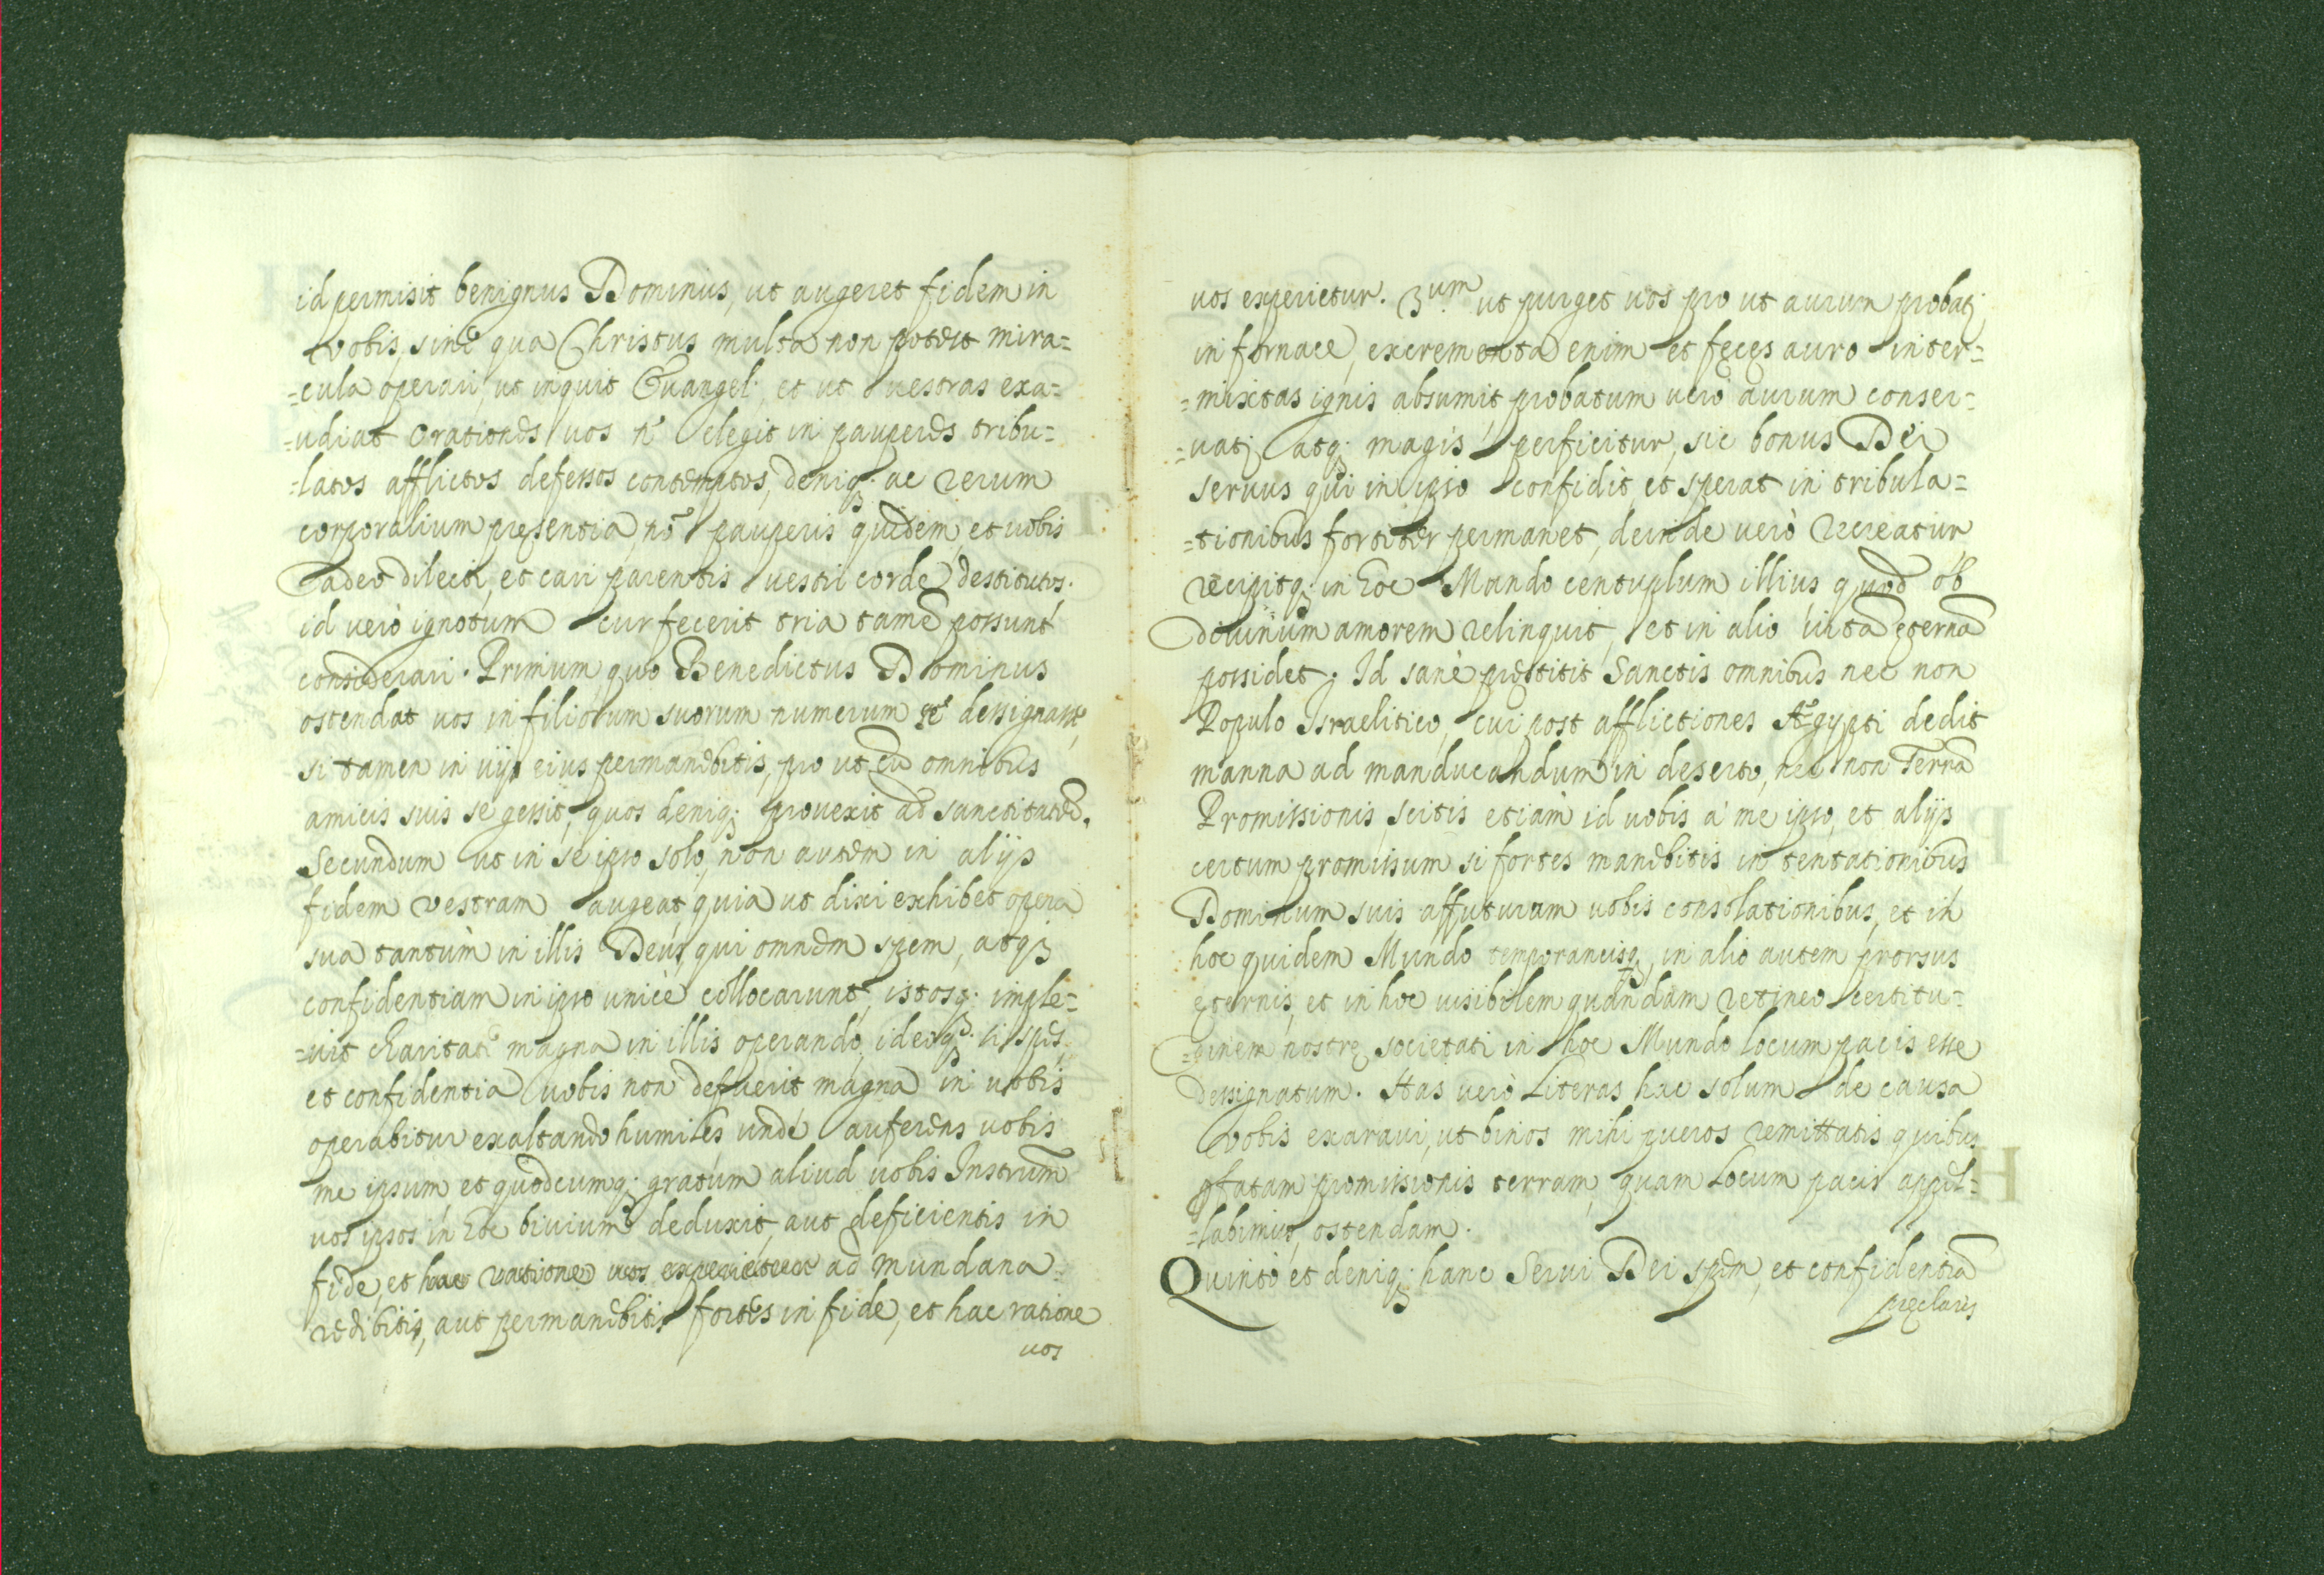 id permisit benignus Dominus, ut augeret fidem in
vobis, sine qua Christus multa non potest mira=
=cula operari, ut inquit Evangel. et ut vestras exa=
=udiat orationes vos elegit in pauperes tribu=
=latos afflictos defessos contemptos, deniq; ac rerum
corporalium pręsentia, nō pauperis quidem, et vobis
adeo dilecti, et cari parentis vestri corde destitutos.
id verò ignotum cur fecerit tria tamē possunt
considerari. Primum quo Benedictus Dominus
ostendat vos in filiorum suorum numerum sē designasse,
si tamen in vijs eius permanebitis, pro ut cū omnibus
amicis suis se gessit, quos deniq; provexit ad sanctitatē.
Secundum ut in se ipso solo, non autem in alijs
fidem vestram augeat, quia ut dixi exhibet opera
sua tantùm in illis Deus, qui omnem spem, atq;
confidentiam in ipso unicè collocarunt, istosq; imple=
=vit charitate magna in illis operando, ideoq; si spes,
et confidentia vobis non defuerit magna in vobis
operabitur exaltando humiles unde auferens vobis
me ipsum, et quodcumq; gratum aliud vobis Instrum
vos ipsos in hoc bivium deduxit, aut deficientis in
fide, et hac ratione vos experietur ad mundana
redibitis, aut permanebitis fortes in fide, et hac ratione
vos
vos experietur. 3.um ut purget vos pro ut aurum probatj
in fornace, excrementa enim et fęces auro inter=
=mixtas ignis absumit, probatum verò aurum conser=
=vatj atq; magis perficitur, sic bonus Dei
servus qui in ipso confidit, et sperat in tribula=
=tionibus fortiter permanet, deinde verò recreatur
recipitq; in hoc Mundo centuplum illius quod ob
divinum amorem relinquit, et in alio vitā ęternā
possidet. Id sanè pręstitit Sanctis omnibus nec non
Populo Israelitico, cui post afflictiones Ægypti dedit
manna ad manducandum in deserto, nec non Terrā
Promissionis, scitis etiam id vobis à me ipso, et alijs
certum promissum si fortes manebitis in tentationibus
Dominum suis affuturum vobis consolationibus, et in
hoc quidem Mundo temporaneisq;, in alio autem prorsus
ęternis, et in hoc visibilem quandam retineo certitu=
=dinem nostrę societati in hoc Mundo locum pacis esse
designatum. Has verò Literas hac solum de causa
vobis exaravi, ut binos mihi pueros remittatis quibus
pfatam promissionis terram, quam Locum pacis appel=
=labimus, ostendam.
Quintò et deniq; hanc Servi Dei spem, et confidentiā
pręclaris